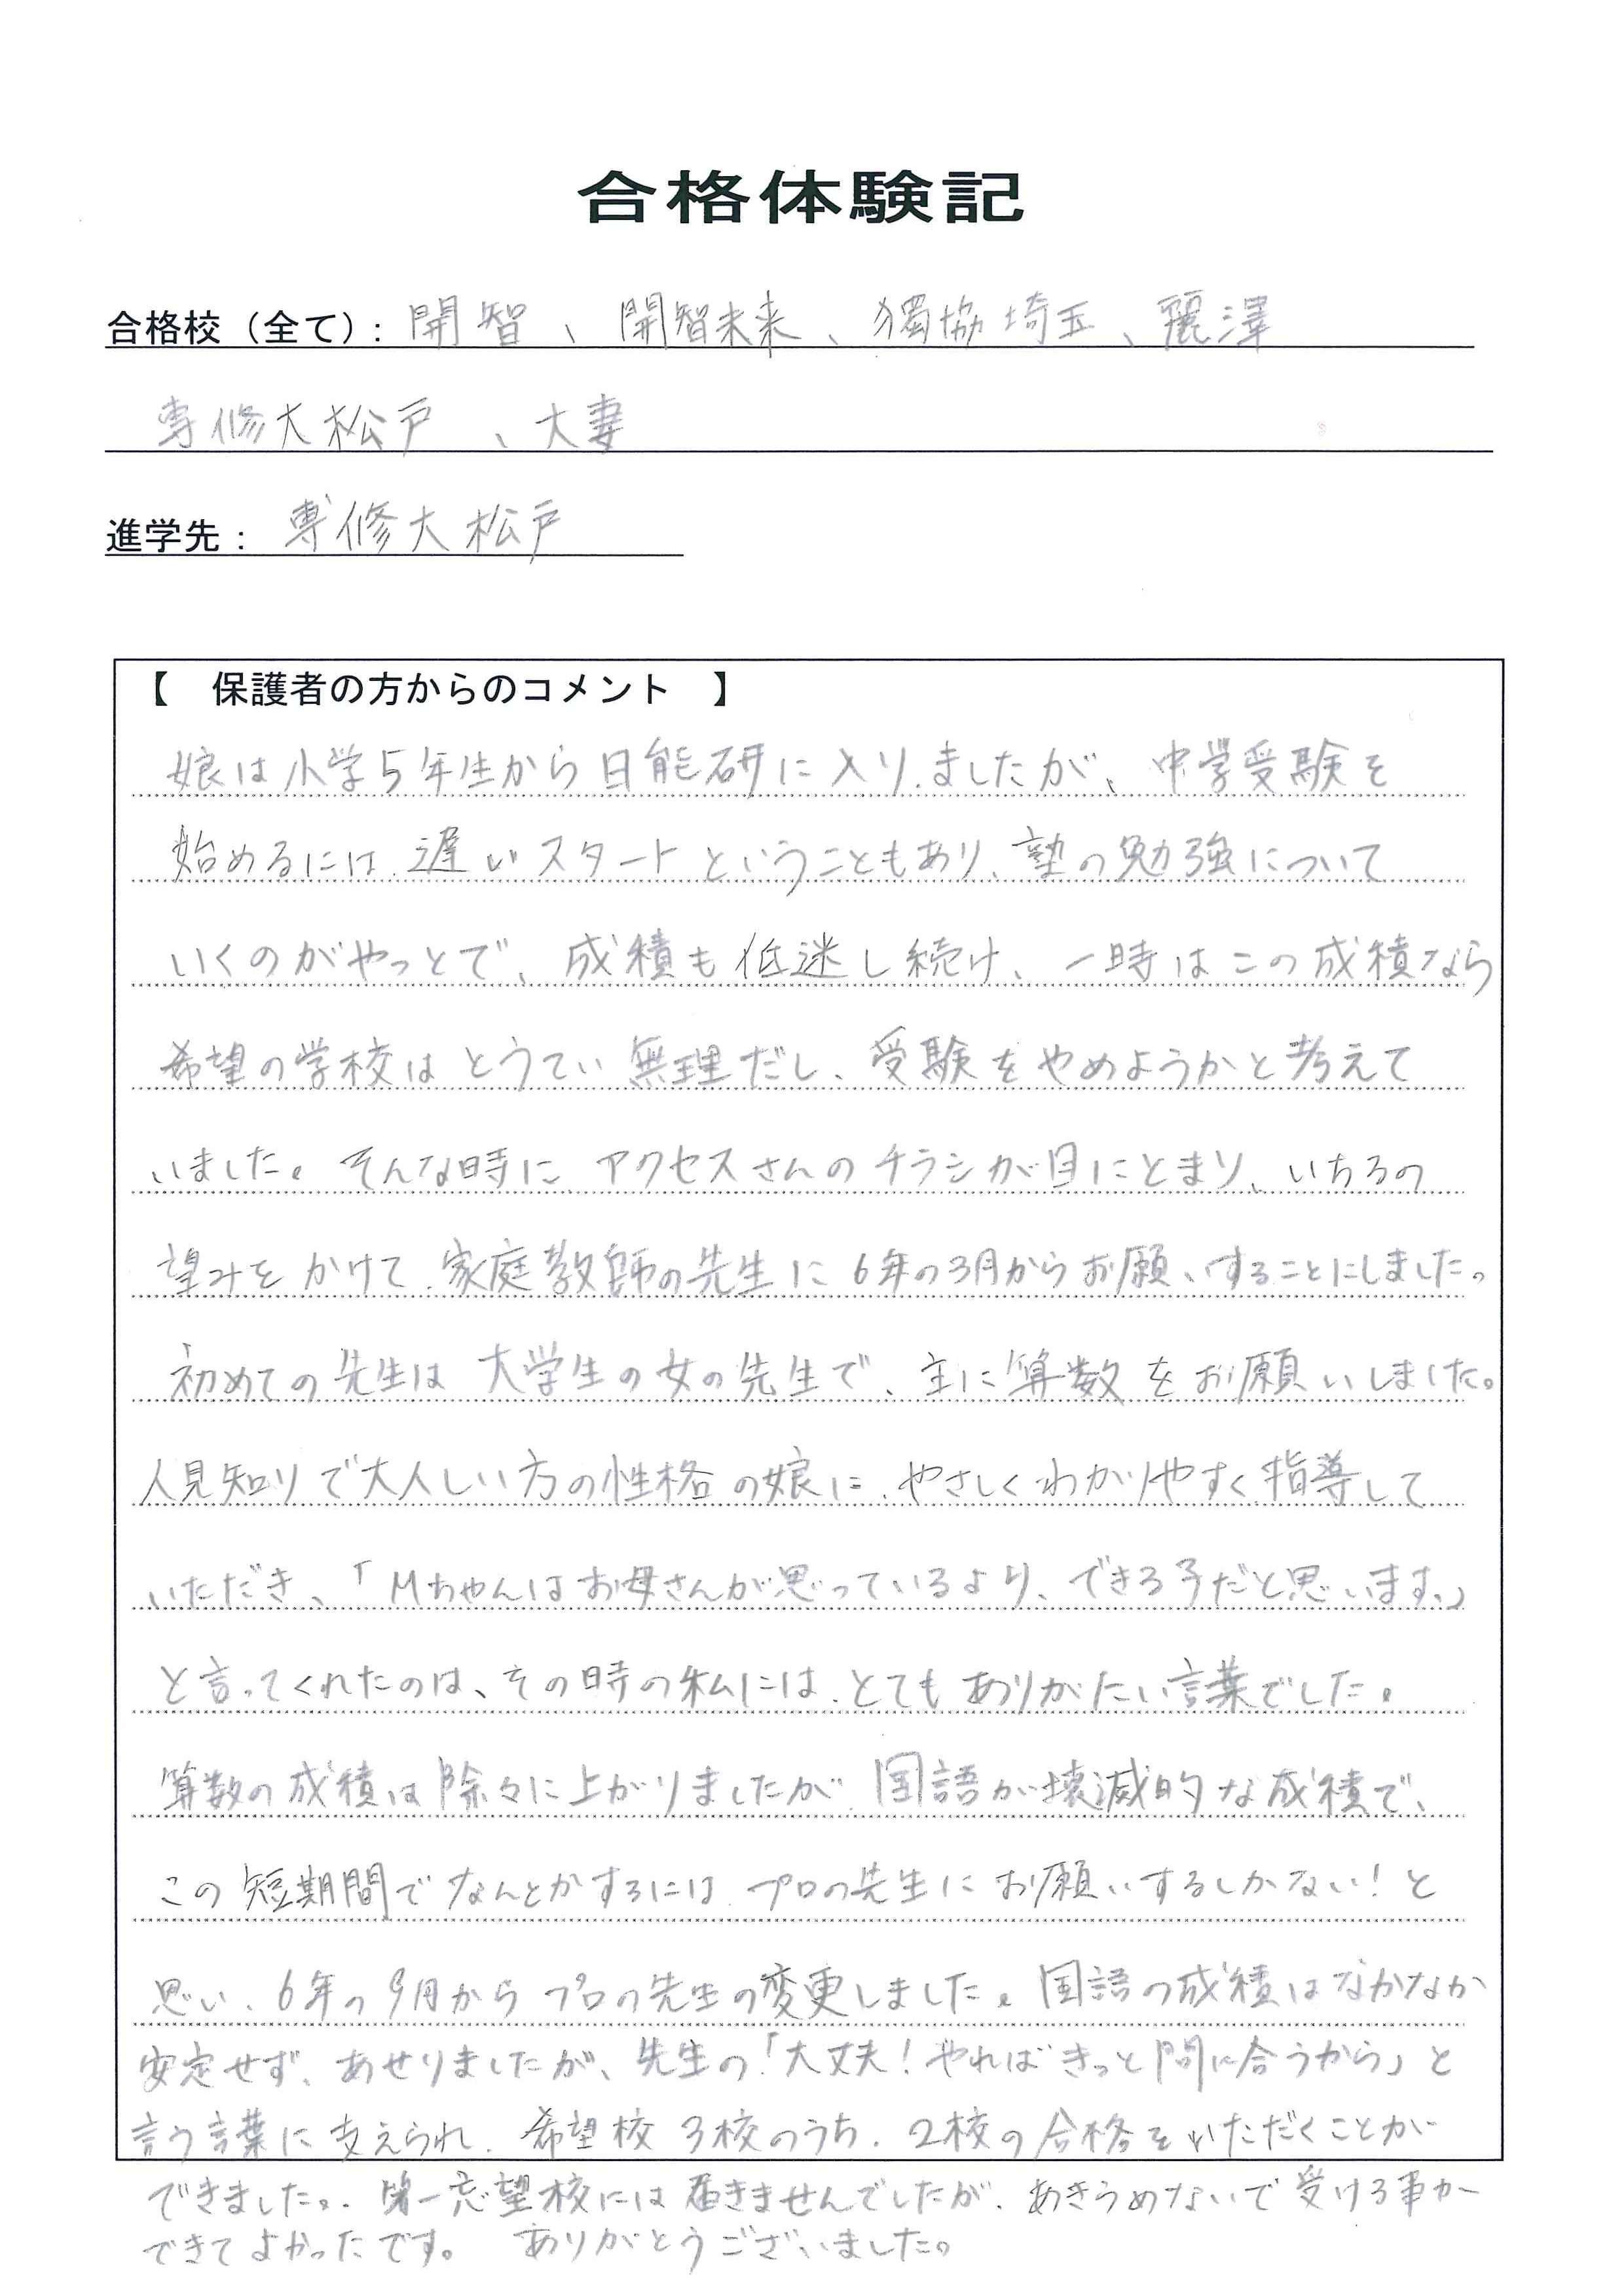 合格体験記
合格校（全て）: 開智、開智未来、獨協埼玉、麗澤
専修大松戸、大妻
進学先: 専修大松戸
【　保護者の方からのコメント　】
娘は小学5年生から日能研に入りましたが、中学受験を
始めるには遅いスタートということもあり、塾の勉強について
いくのがやっとで、成積も低迷し続け、一時はこの成積なら
希望の学校はとうてい無理だし、受験をやめようかと考えて
いました。そんな時に、アクセスさんのチラシが目にとまり、いちるの
望みをかけて、家庭教師の先生に6年の3月からお願いすることにしました。
初めての先生は大学生の女の先生で、主に算数をお願いしました。
人見知りで大人しい方の性格の娘に、やさしくわかりやすく指導して
いただき、「Mちゃんはお母さんが思っているより、できる子だと思います。」
と言ってくれたのは、その時の私には、とてもありがたい言葉でした。
算数の成積は除々に上がりましたが、国語が壊滅的な成積で、
この短期間でなんとかするには、プロの先生にお願いするしかない！と
思い、6年の9月からプロの先生の変更しました。国語の成積はなかなか
安定せず、あせりましたが、先生の「大丈夫！やればきっと間に合うから」と
言う言葉に支えられ、希望校3校のうち、2校の合格をいただくことが
できました。第一志望校には届きませんでしたが、あきらめないで受ける事が
できてよかったです。ありがとうございました。